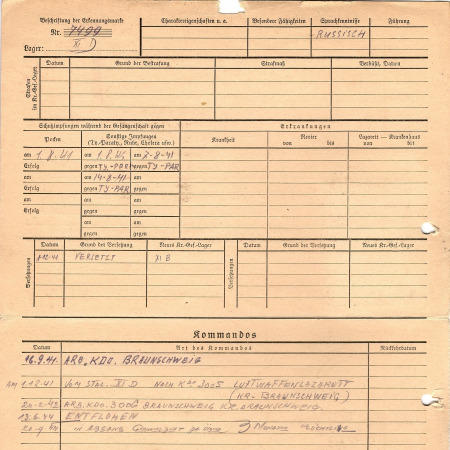 Beschriftung der Erkennungsmarke
Nr. 7499
Lager: XI D
Charaktereigenschaften u. a.
Besondere Fähigkeiten
Sprachkenntnisse
RUSSISCH
Führung
Strafen im Kr.-Gef.-Lager
Datum
Grund der Bestrafung
Strafmaß
Verbüßt, Datum
Schutzimpfungen während der Gefangenschaft gegen
Erkrankungen
Pocken
Sonstige Impfungen
(Ty.-Paraty., Ruhr, Cholera usw.)
Krankheit
Revier
von bis
Lazarett — Krankenhaus
von bis
am 1.8.41 am 1.8.41 am 7-8-41
Erfolg gegen TY-PAR gegen TY-PAR
am am 14-8-41 am
Erfolg gegen TY-PAR gegen
am am am
Erfolg gegen gegen
am am
gegen gegen
Versetzungen
Datum
Grund der Versetzung
Neues Kr.-Gef.-Lager
Versetzungen
Datum
Grund der Versetzung
Neues Kr.-Gef.-Lager
VERSETZT XI B
Kommandos
Datum
Art des Kommandos
Rückkehrdatum
16.9.41. ARB. KDO. BRAUNSCHWEIG
AM 1.12.41 VOM STAL. XI D NACH K 3005 LUFTWAFFENLAZARETT
(KR. BRAUNSCHWEIG)
20-2-42 ARB. KDO. 3006 BRAUNSCHWEIG KR. BRAUNSCHWEIG.
13.6.44 ENTFLOHEN
IN ABGANG